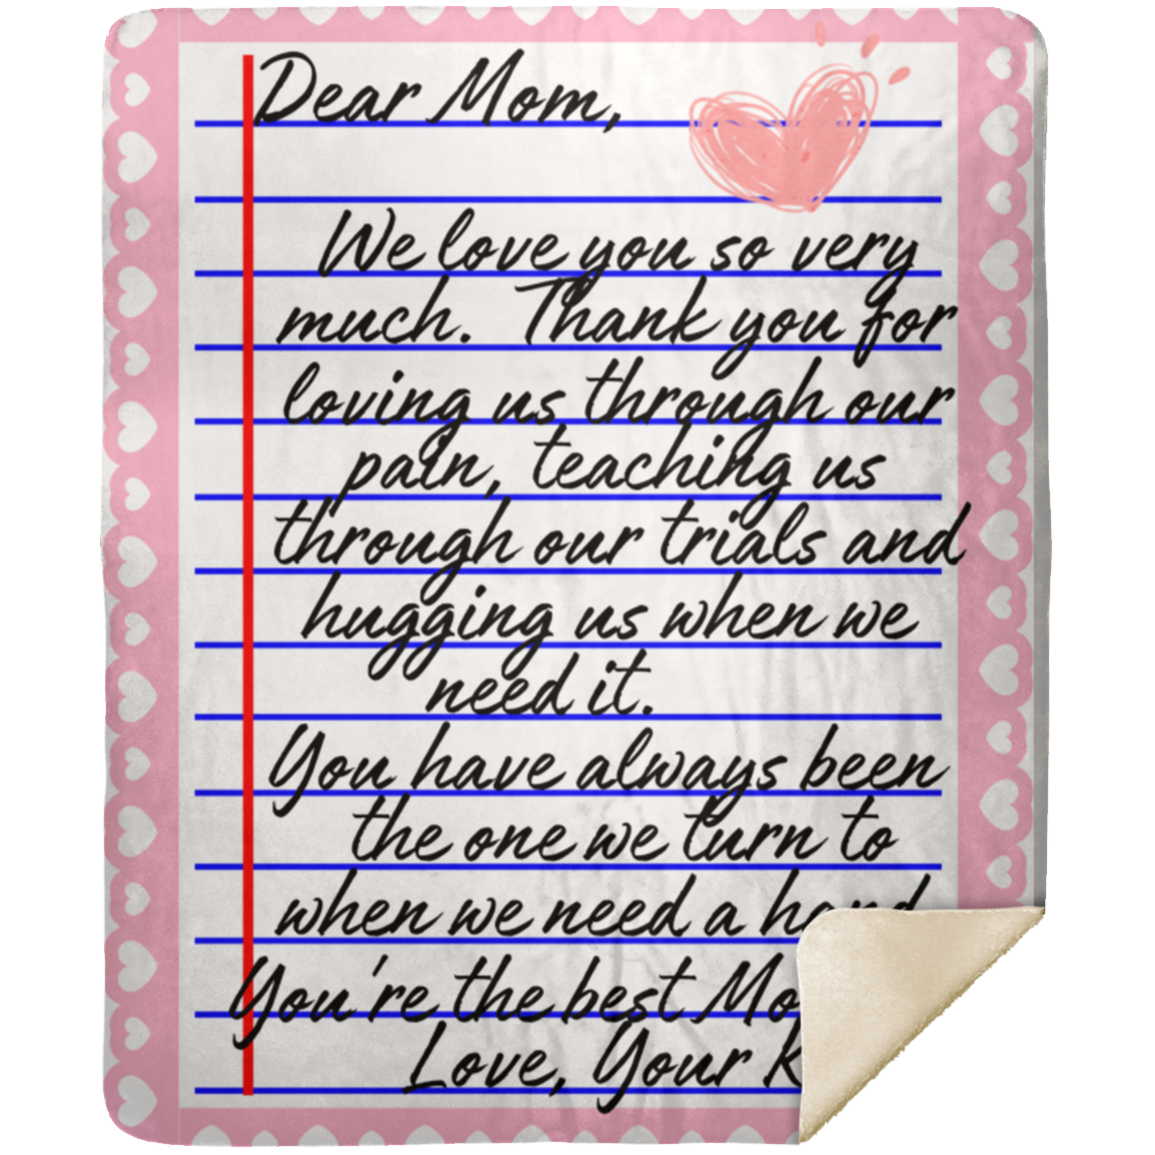 Dear Mom,
We love you so very
much. Thank you for
loving us through our
pain, teaching us
through our trials and
hugging us when we
need it.
You have always been
the one we turn to
when we need a hand
You're the best
Love, Your